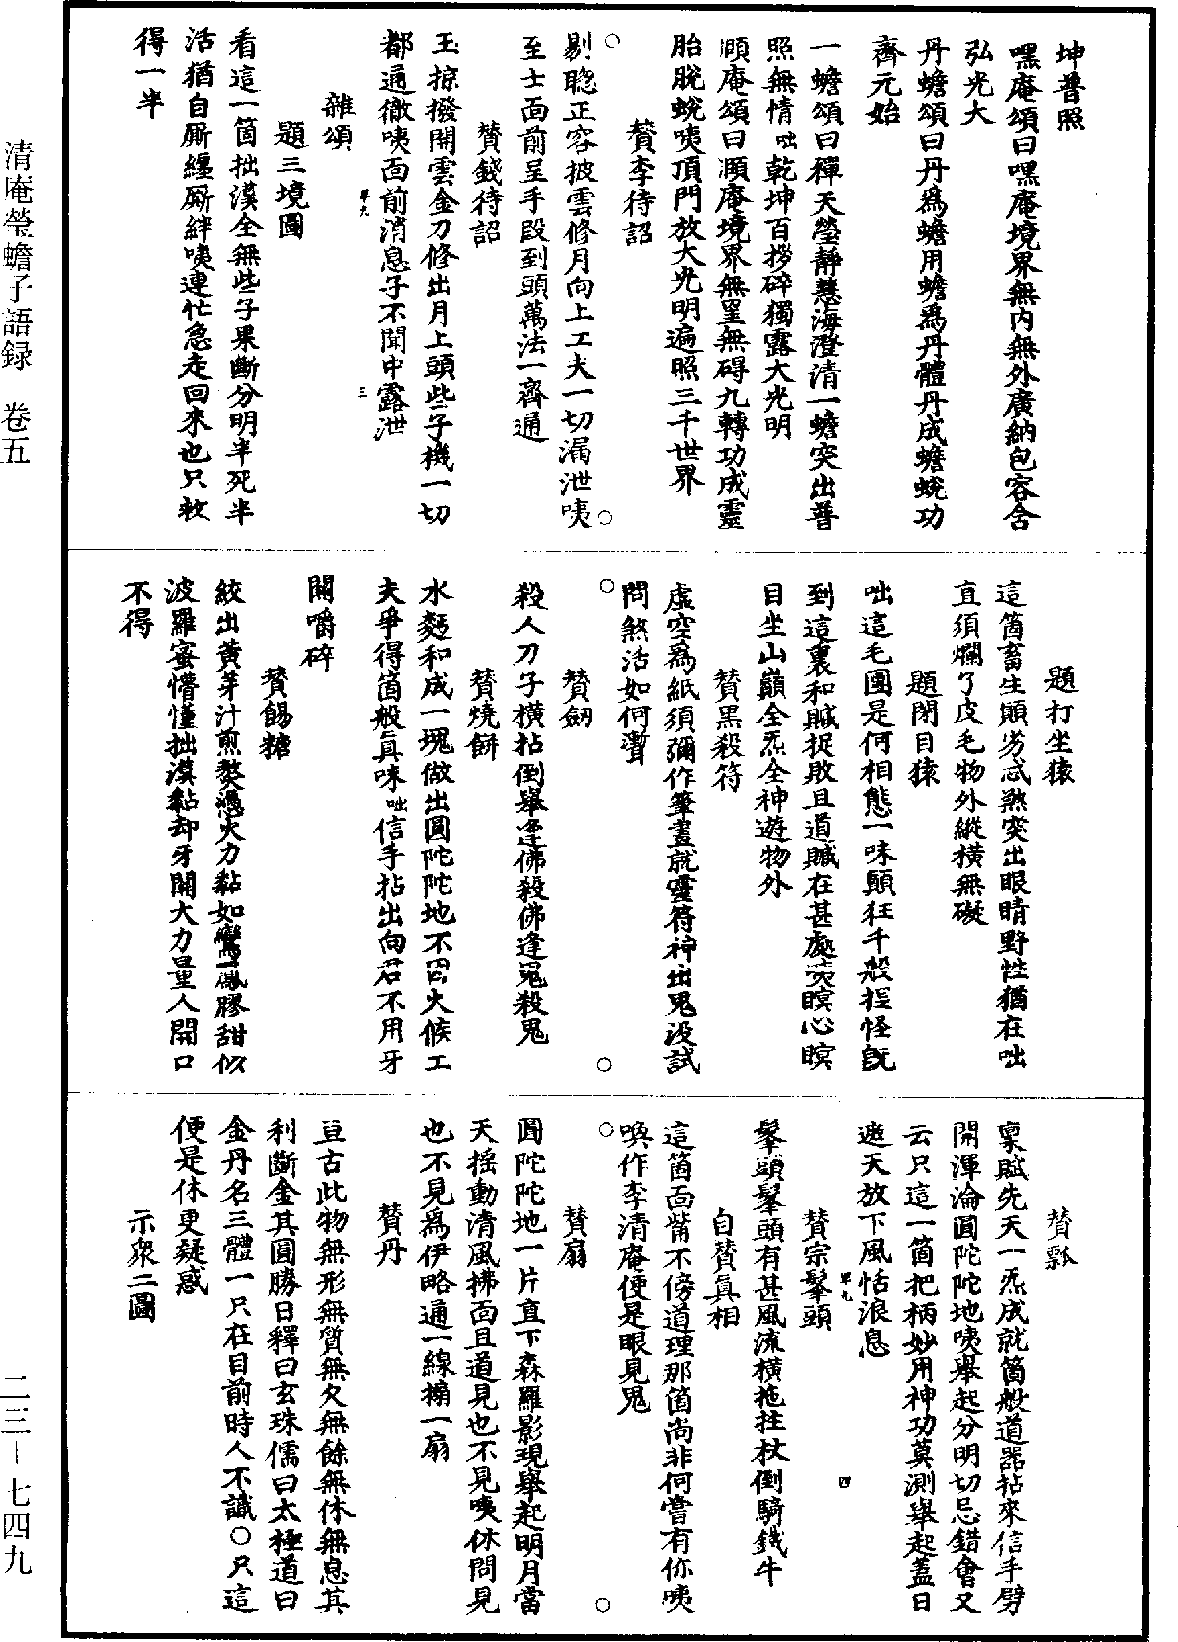 坤普照
嘿庵頌曰嘿庵境界無內無外廣納包容含
弘光大
丹蟾頌曰丹爲蟾用蟾爲丹體丹成蟾蛻功
齊元始
一蟾頌曰禪天瑩靜慧海澄清一蟾突出普
照無情咄乾坤百拶碎獨露大光明
頤庵頌曰頤庵境界無罣無碍九轉功成靈
胎脫蛻咦頂門放大光明遍照三千世界
贊李待詔
剔聦正容披雲修月向上工夫一切漏泄咦
至士面前呈手段到頭萬法一齊通
贊錢待詔
玉掠撥開雲金刀修出月上頭些子機一切
都通徹咦面前消息子不聞中露泄
雜頌
題三境圖
看這一箇拙漢全無些子果斷分明半死半
活猶自厮纏厮絆咦連忙急走回來也只救
得一半
題打坐猿
這箇畜生顚劣忒煞突出眼睛野性猶在咄
直須爛了皮毛物外縱橫無礙
題閉目猿
咄這毛團是何相態一味顚狂千般捏怪旣
到這裏和贓捉敗且道贓在甚處咦瞑心瞑
目坐山巔全炁全神遊物外
贊黑殺符
虛空爲紙須彌作筆畫就靈符神出鬼没試
問煞活如何漸
贊劒
殺人刀子橫拈倒舉逢佛殺佛逢鬼殺鬼
贊燒餅
水麪和成一塊做出圓陀陀地不因火候工
夫爭得箇般眞味咄信手拈出向君不用牙
關嚼碎
贊餳糖
絞出黃芽汁煎熬憑火力黏如鸞鳳膠甜似
波羅蜜懵懂拙漢黏却牙關大力量人開口
不得
贊瓢
禀賦先天一炁成就箇般道器拈來信手劈
開渾淪圓陀陀地咦舉起分明切忌錯會又
云只這一箇把柄妙用神功莫測舉起蓋日
遮天放下風恬浪息
贊宗髼頭
髼頭髼頭有甚風流橫拖拄杖倒騎鐵牛
自贊眞相
這箇面觜不傍道理那箇尚非何嘗有你咦
喚作李清庵便是眼見鬼
贊扇
圓陀陀地一片直下森羅影現舉起明月當
天摇動清風拂面且道見也不見咦休問見
也不見爲伊略通一線搧一扇
贊丹
亘古此物無形無質無欠無餘無休無息其
利斷金其圓勝日釋曰玄珠儒曰太極道曰
金丹名三體一只在目前時人不識○只這
便是休更疑惑
示衆二圖
清庵瑩蟾子語録 卷五
二三-七四九